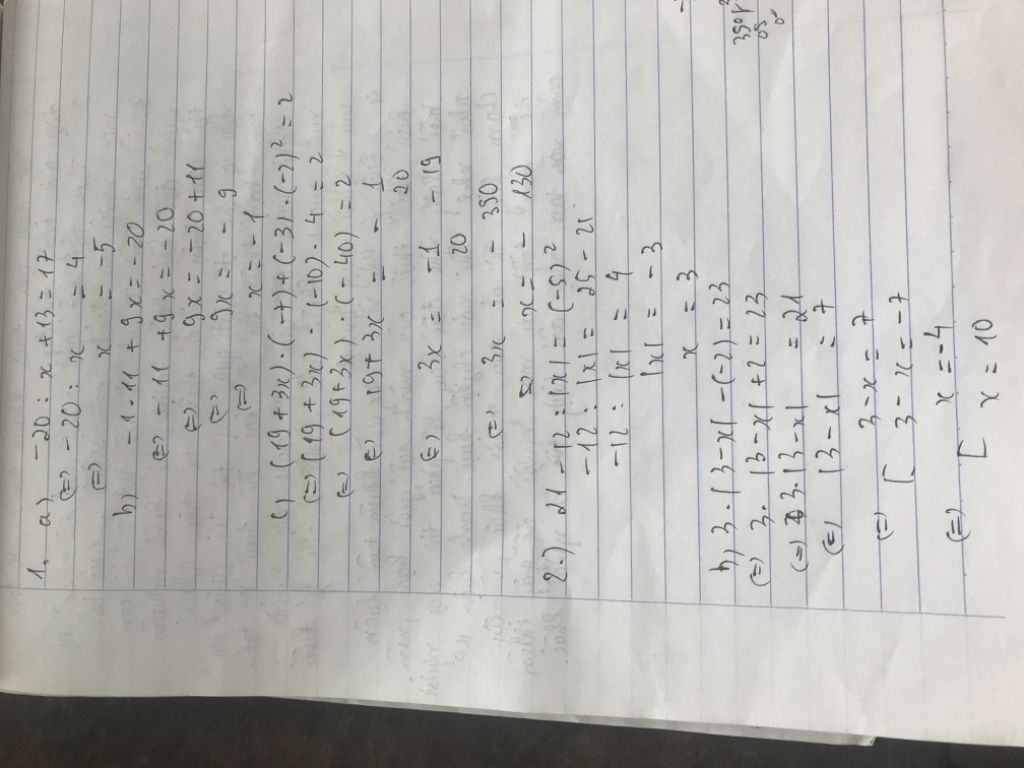 1. a) -20 : x + 13 = 17
(=) -20 : x = 4
(=) x = -5
b) -1.11 + 9x = -20
(=) -11 + 9x = -20
(=) 9x = -20 + 11
(=) 9x = -9
(=) x = -1
c) (19 + 3x) . (-7) + (-3) . (-2)² = 2
(=) (19 + 3x) . (-10) . 4 = 2
(=) (19 + 3x) . (-40) = 2
(=) 19 + 3x = - 1/20
(=) 3x = -1/20 - 19
(=) 3x = - 390
(=) x = - 130
2.) 21 - 12 : |x| = (-5)²
-12 : |x| = 25 - 21
-12 : |x| = 4
|x| = -3
x = 3
b, 3 . |3 - x| - (-2) = 23
(=) 3. |3 - x| + 2 = 23
(=) 3. |3 - x| = 21
(=) |3 - x| = 7
(=) [ 3 - x = 7
3 - x = -7
(=) [ x = -4
x = 10